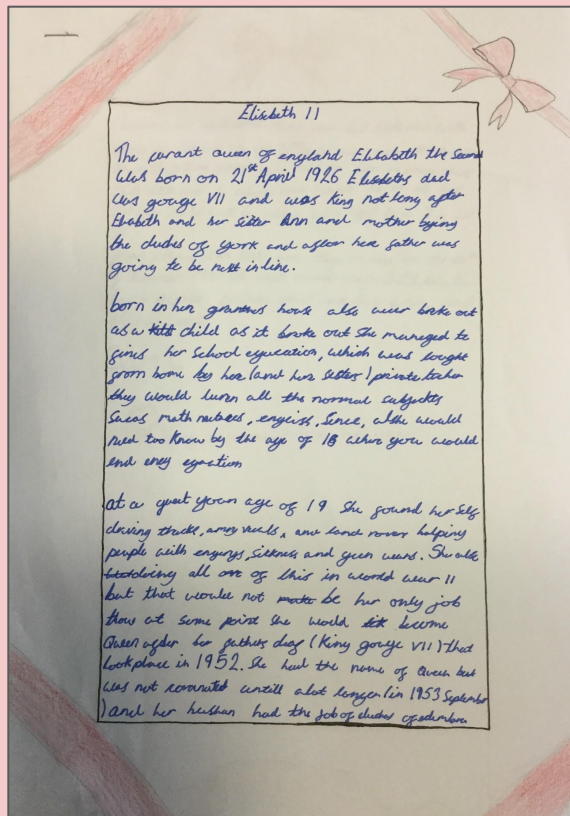 1
Elisebeth II
The curant queen of england Elisabeth the Second
was born on 21st April 1926 Elisebeths dad
was gouge VII and was King not long after
Elisabeth and her sister Ann and mother bying
the dudes of york and after here father was
going to be next in line.
born in her grandmas house also wear broke out
as a child as it broke out she managed to
finis her school eyucation, which was tought
from home by her (and her sisters) private teacher
they would luren all the normal subjects
Sucas math, engliss, Since, also would
need too know by the age of 18 when you would
end eney eyucation
at a quit youn age of 19 she found her self
driving trucks, amry vicals, and land rover helping
people with engurys, sickness and geen wears. She also
doing all ove of this in world wear 11
but that would not be her only job
thow at some point she would become
Queen after her fathers deaf (King gouge VII) that
took place in 1952. She had the name of Queen but
was not coronated untill alot longer (in 1953 September
) and her husban had the job of dudes of edumbra